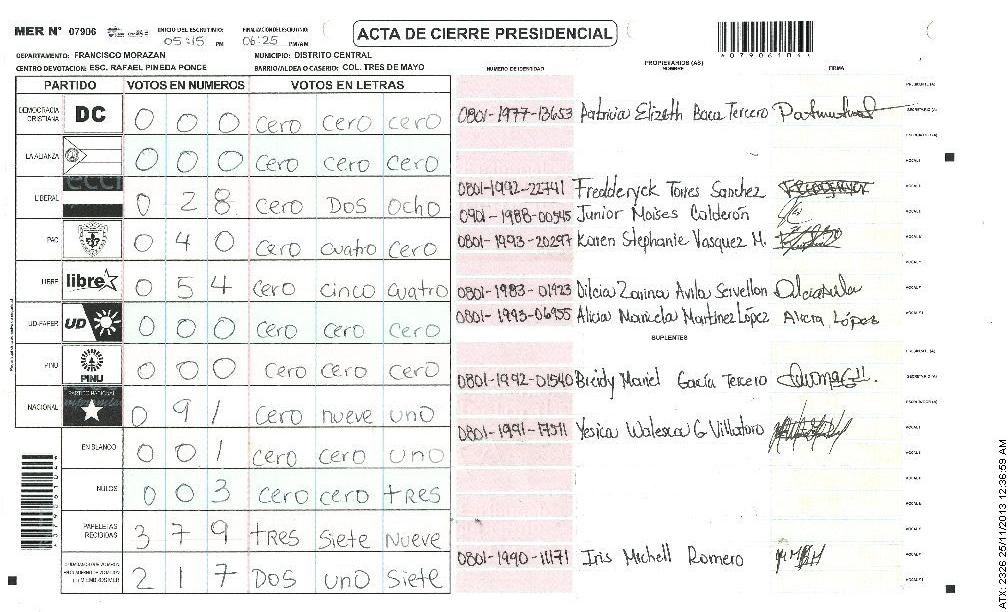 MER N° 07906 INICIO DEL ESCRUTINIO: 05:15 PM FINALIZACION DEL ESCRUTINIO: 06:25 PM/AM
ACTA DE CIERRE PRESIDENCIAL
DEPARTAMENTO: FRANCISCO MORAZAN MUNICIPIO: DISTRITO CENTRAL
CENTRO DE VOTACION: ESC. RAFAEL PINEDA PONCE BARRIO/ALDEA O CASERIO: COL. TRES DE MAYO
PARTIDO VOTOS EN NUMEROS VOTOS EN LETRAS
DEMOCRACIA CRISTIANA DC 0 0 0 cero cero cero
LA ALIANZA 0 0 0 cero cero cero
LIBERAL 0 2 8 cero DOS ocho
PAC 0 4 0 cero cuatro cero
LIBRE libre 0 5 4 cero cinco cuatro
UD-FAPER UD 0 0 0 cero cero cero
PINU PINU 0 0 0 cero cero cero
NACIONAL PARTIDO NACIONAL 0 9 1 cero nueve uno
EN BLANCO 0 0 1 cero cero uno
NULOS 0 0 3 cero cero tres
PAPELETAS RECIBIDAS 3 7 9 tres siete nueve
2 1 7 DOS uno siete
NUMERO DE IDENTIDAD PROPIETARIOS (AS) NOMBRE FIRMA
0801-1977-13653 Patricia Elizeth Baca Tercero
0801-1992-22741 Fredderyck Torres Sanchez
0901-1988-00545 Junior Moises Calderón
0801-1993-20297 Karen Stephanie Vasquez M.
0801-1983-01423 Dilcia Zarina Avila Servellon
0801-1993-06955 Alicia Maricela Martinez López Alicia López
SUPLENTES
0801-1992-01540 Breidy Mariel García Tercero
0801-1991-17511 Yesica Walesca G Villatoro
0801-1990-11171 Iris Michell Romero
ATX: 2326 25/11/2013 12:36:59 AM